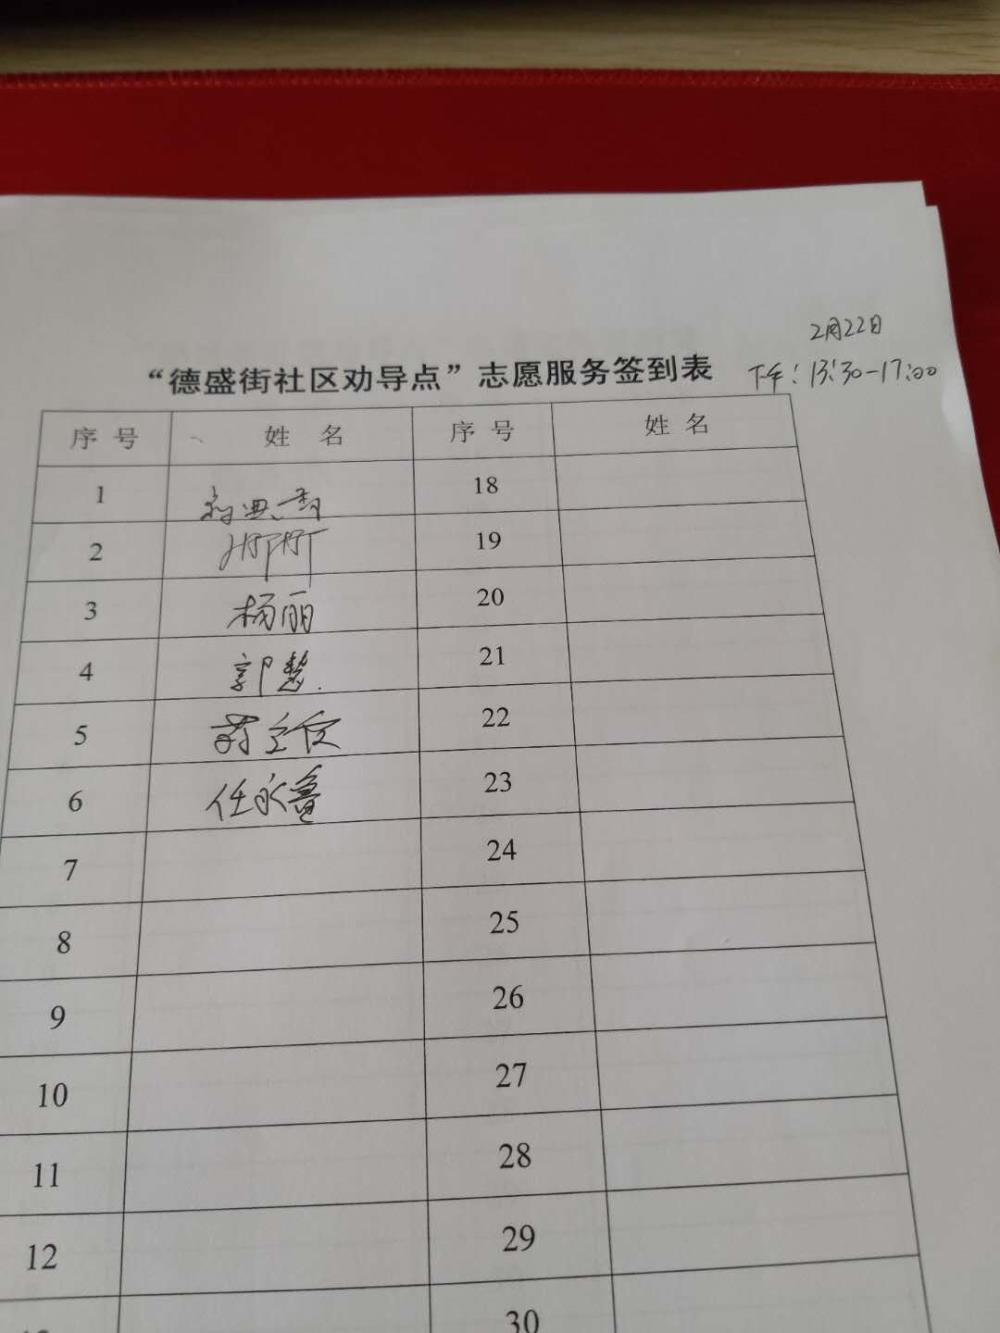 2月22日
下午：13:30-17:00
“德盛街社区劝导点”志愿服务签到表
序号 姓名 序号 姓名
1 18
2 19
3 杨丽 20
4 郭慧 21
5 22
6 任永鲁 23
7 24
8 25
9 26
10 27
11 28
12 29
30